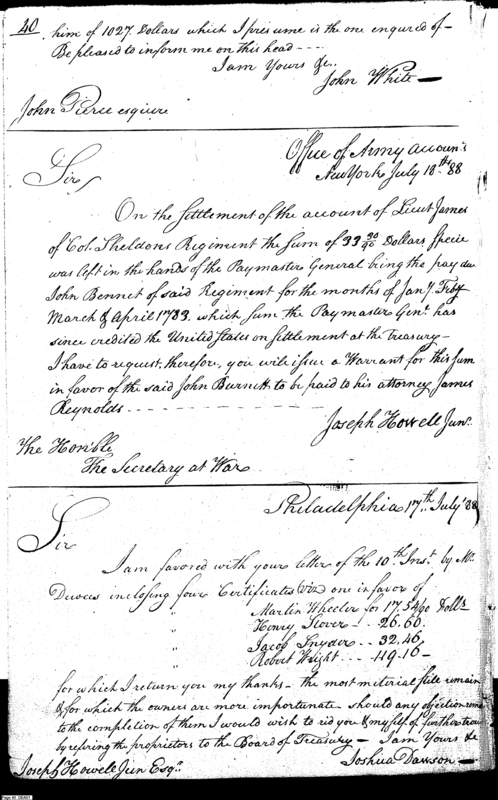 40
him of 1027 Dollars which I presume is the one enquired of–
Be pleased to inform me on this head----
I am Yours &c..
John White–
John Pierce esquire
Office of Army Accounts
New York July 18th 88
Sir
On the Settlement of the account of Lieut James
of Col. Sheldons Regiment the Sum of 33 30/90 Dollars Specie
was left in the hands of the Paymaster General being the pay due
John Bennet of said Regiment for the months of Jany. Feby
March & April 1783. which Sum the Paymaster Genl. has
since credited the United States on Settlement at the Treasury–
I have to request, therefore, you will issue a Warrant for this Sum
in favor of the said John Burnett, to be paid to his attorney James
Reynolds
Joseph Howell Junr.
The Honble
The Secretary at War
Philadelphia 17th. July 88
Sir
I am favored with your letter of the 10th. Inst. by Mr
Dewees inclosing four Certificates (viz) one in favor of
Martin Wheeler for 17.54/90 Dolls
" Henry Stover -- 26.60.
" Jacob Snyder -- 32.46
" Robert Wright --- 119.16–
for which I return you my thanks– the most material still remain
& for which the owners are more importunate should any objection
to the completion of them I would wish to rid you & myself of further
by refering the proprietors to the Board of Treasury– I am Yours &c
Joshua Dawson–
Joseph Howell Jun Esqr.